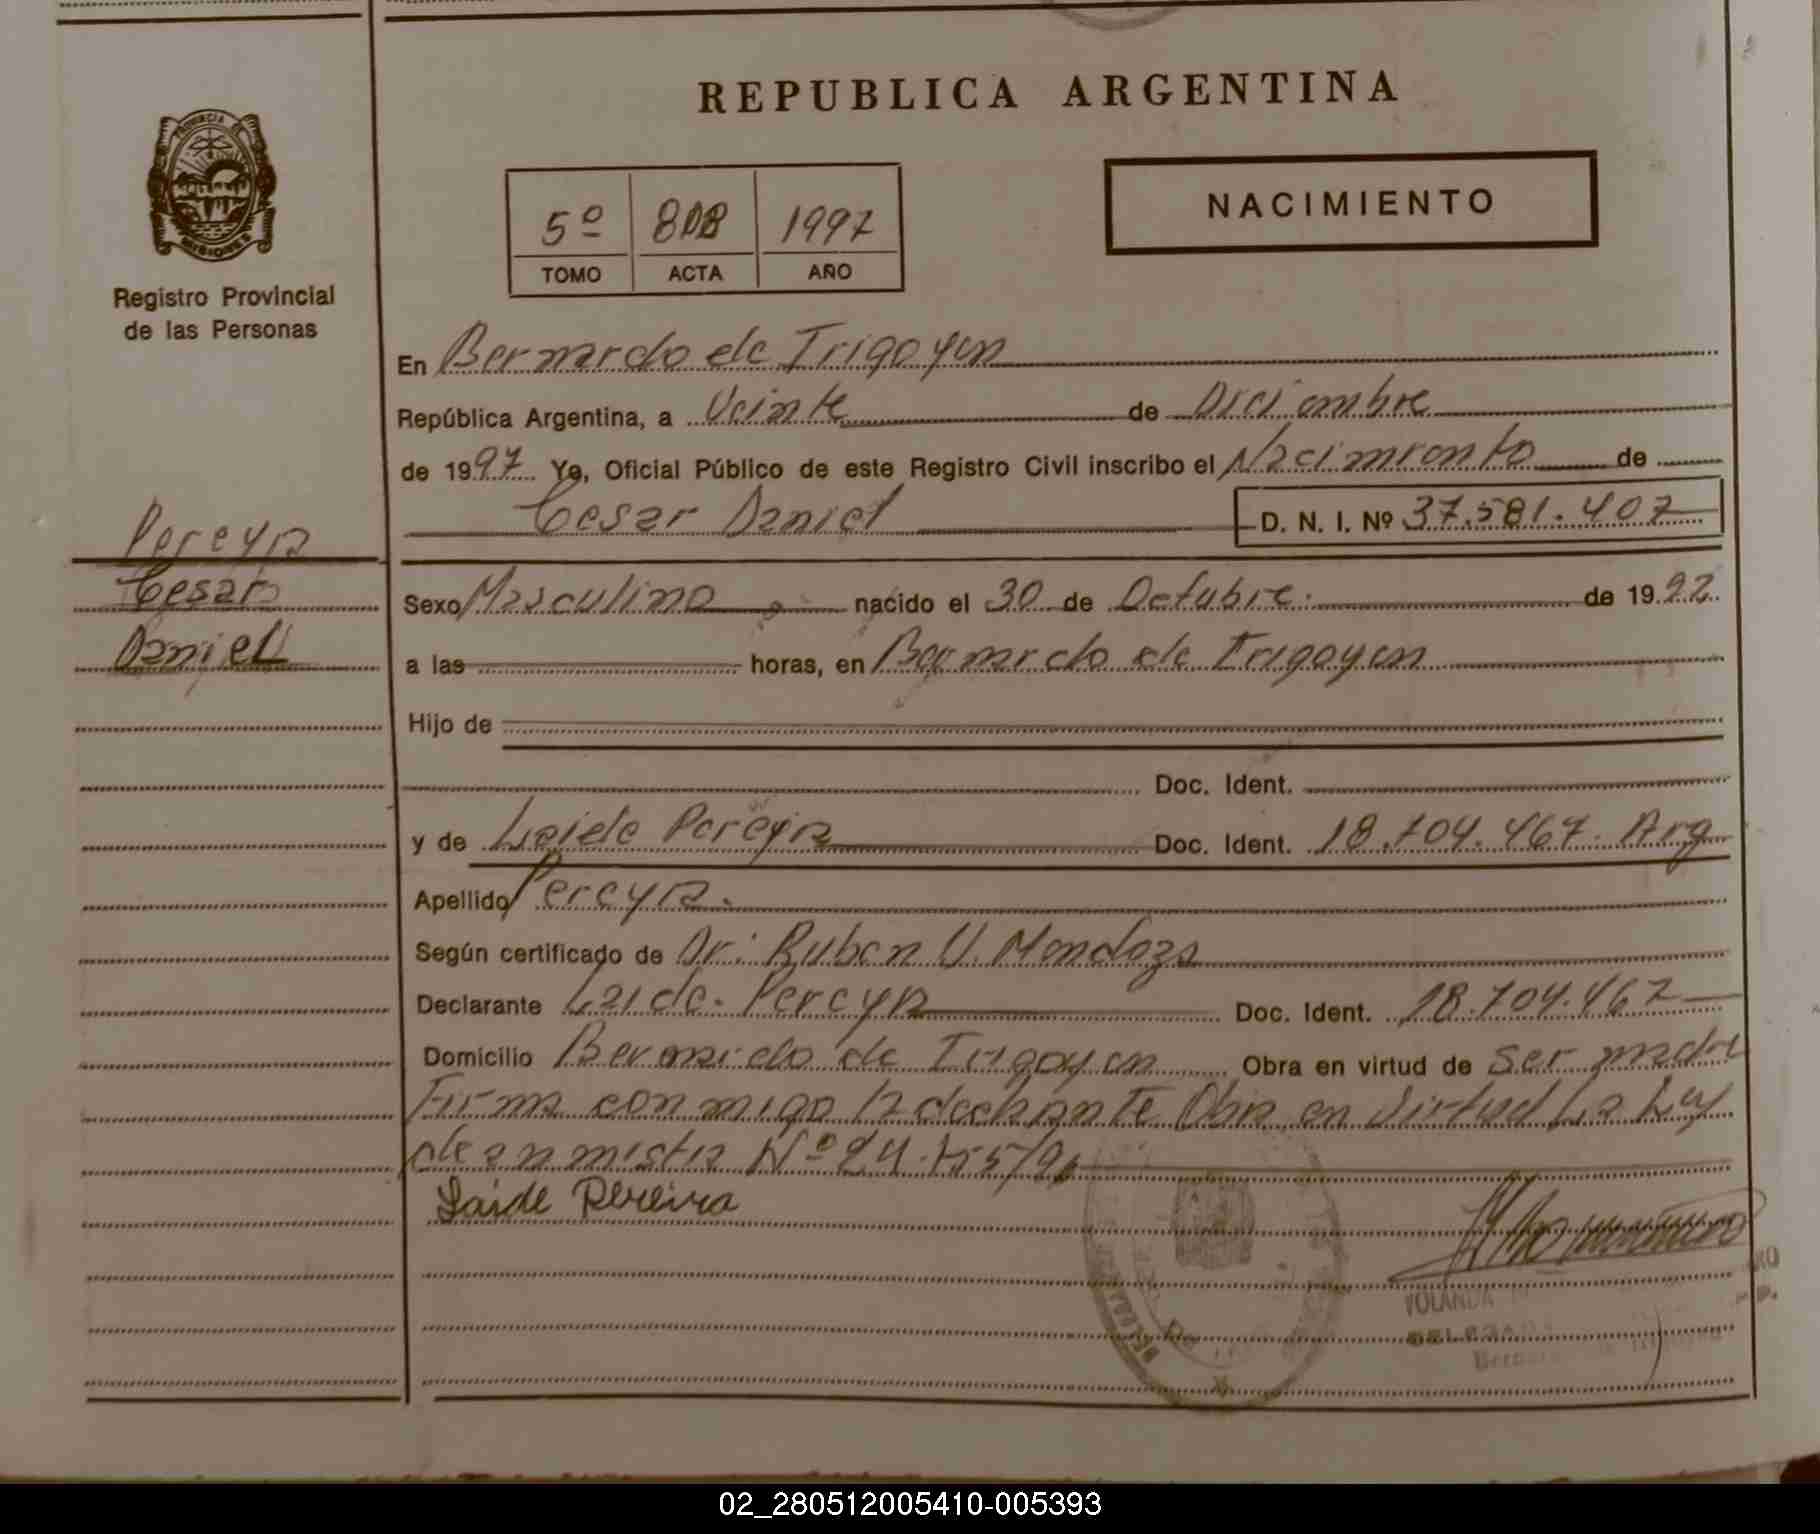 REPUBLICA ARGENTINA
PROVINCIA DE
MISIONES
Registro Provincial
de las Personas
5º 1997
TOMO ACTA AÑO
NACIMIENTO
En Bernardo de Irigoyen
República Argentina, a Veinte de Diciembre
de 1997 Yo, Oficial Público de este Registro Civil inscribo el Nacimiento de
Cesar Daniel D. N. I. Nº 37.581.407
Pereyra
Cesar
Daniel
Sexo Masculino nacido el 30 de Octubre. de 1992
a las horas, en Bernardo de Irigoyen
Hijo de
Doc. Ident.
y de Laide Pereyra Doc. Ident. 18.704.467. Arg
Apellido Pereyra.
Según certificado de Dr: Ruben V. Mendoza
Declarante Laide. Pereyra Doc. Ident. 18.704.467
Domicilio Bernardo de Irigoyen Obra en virtud de Ser madre
Firma conmigo la declarante Obra en Virtud La Ley
de anmistia Nº 24.755/96
Laide Pereira
YOLANDA
Bernardo de Irigoyen
02_280512005410-005393